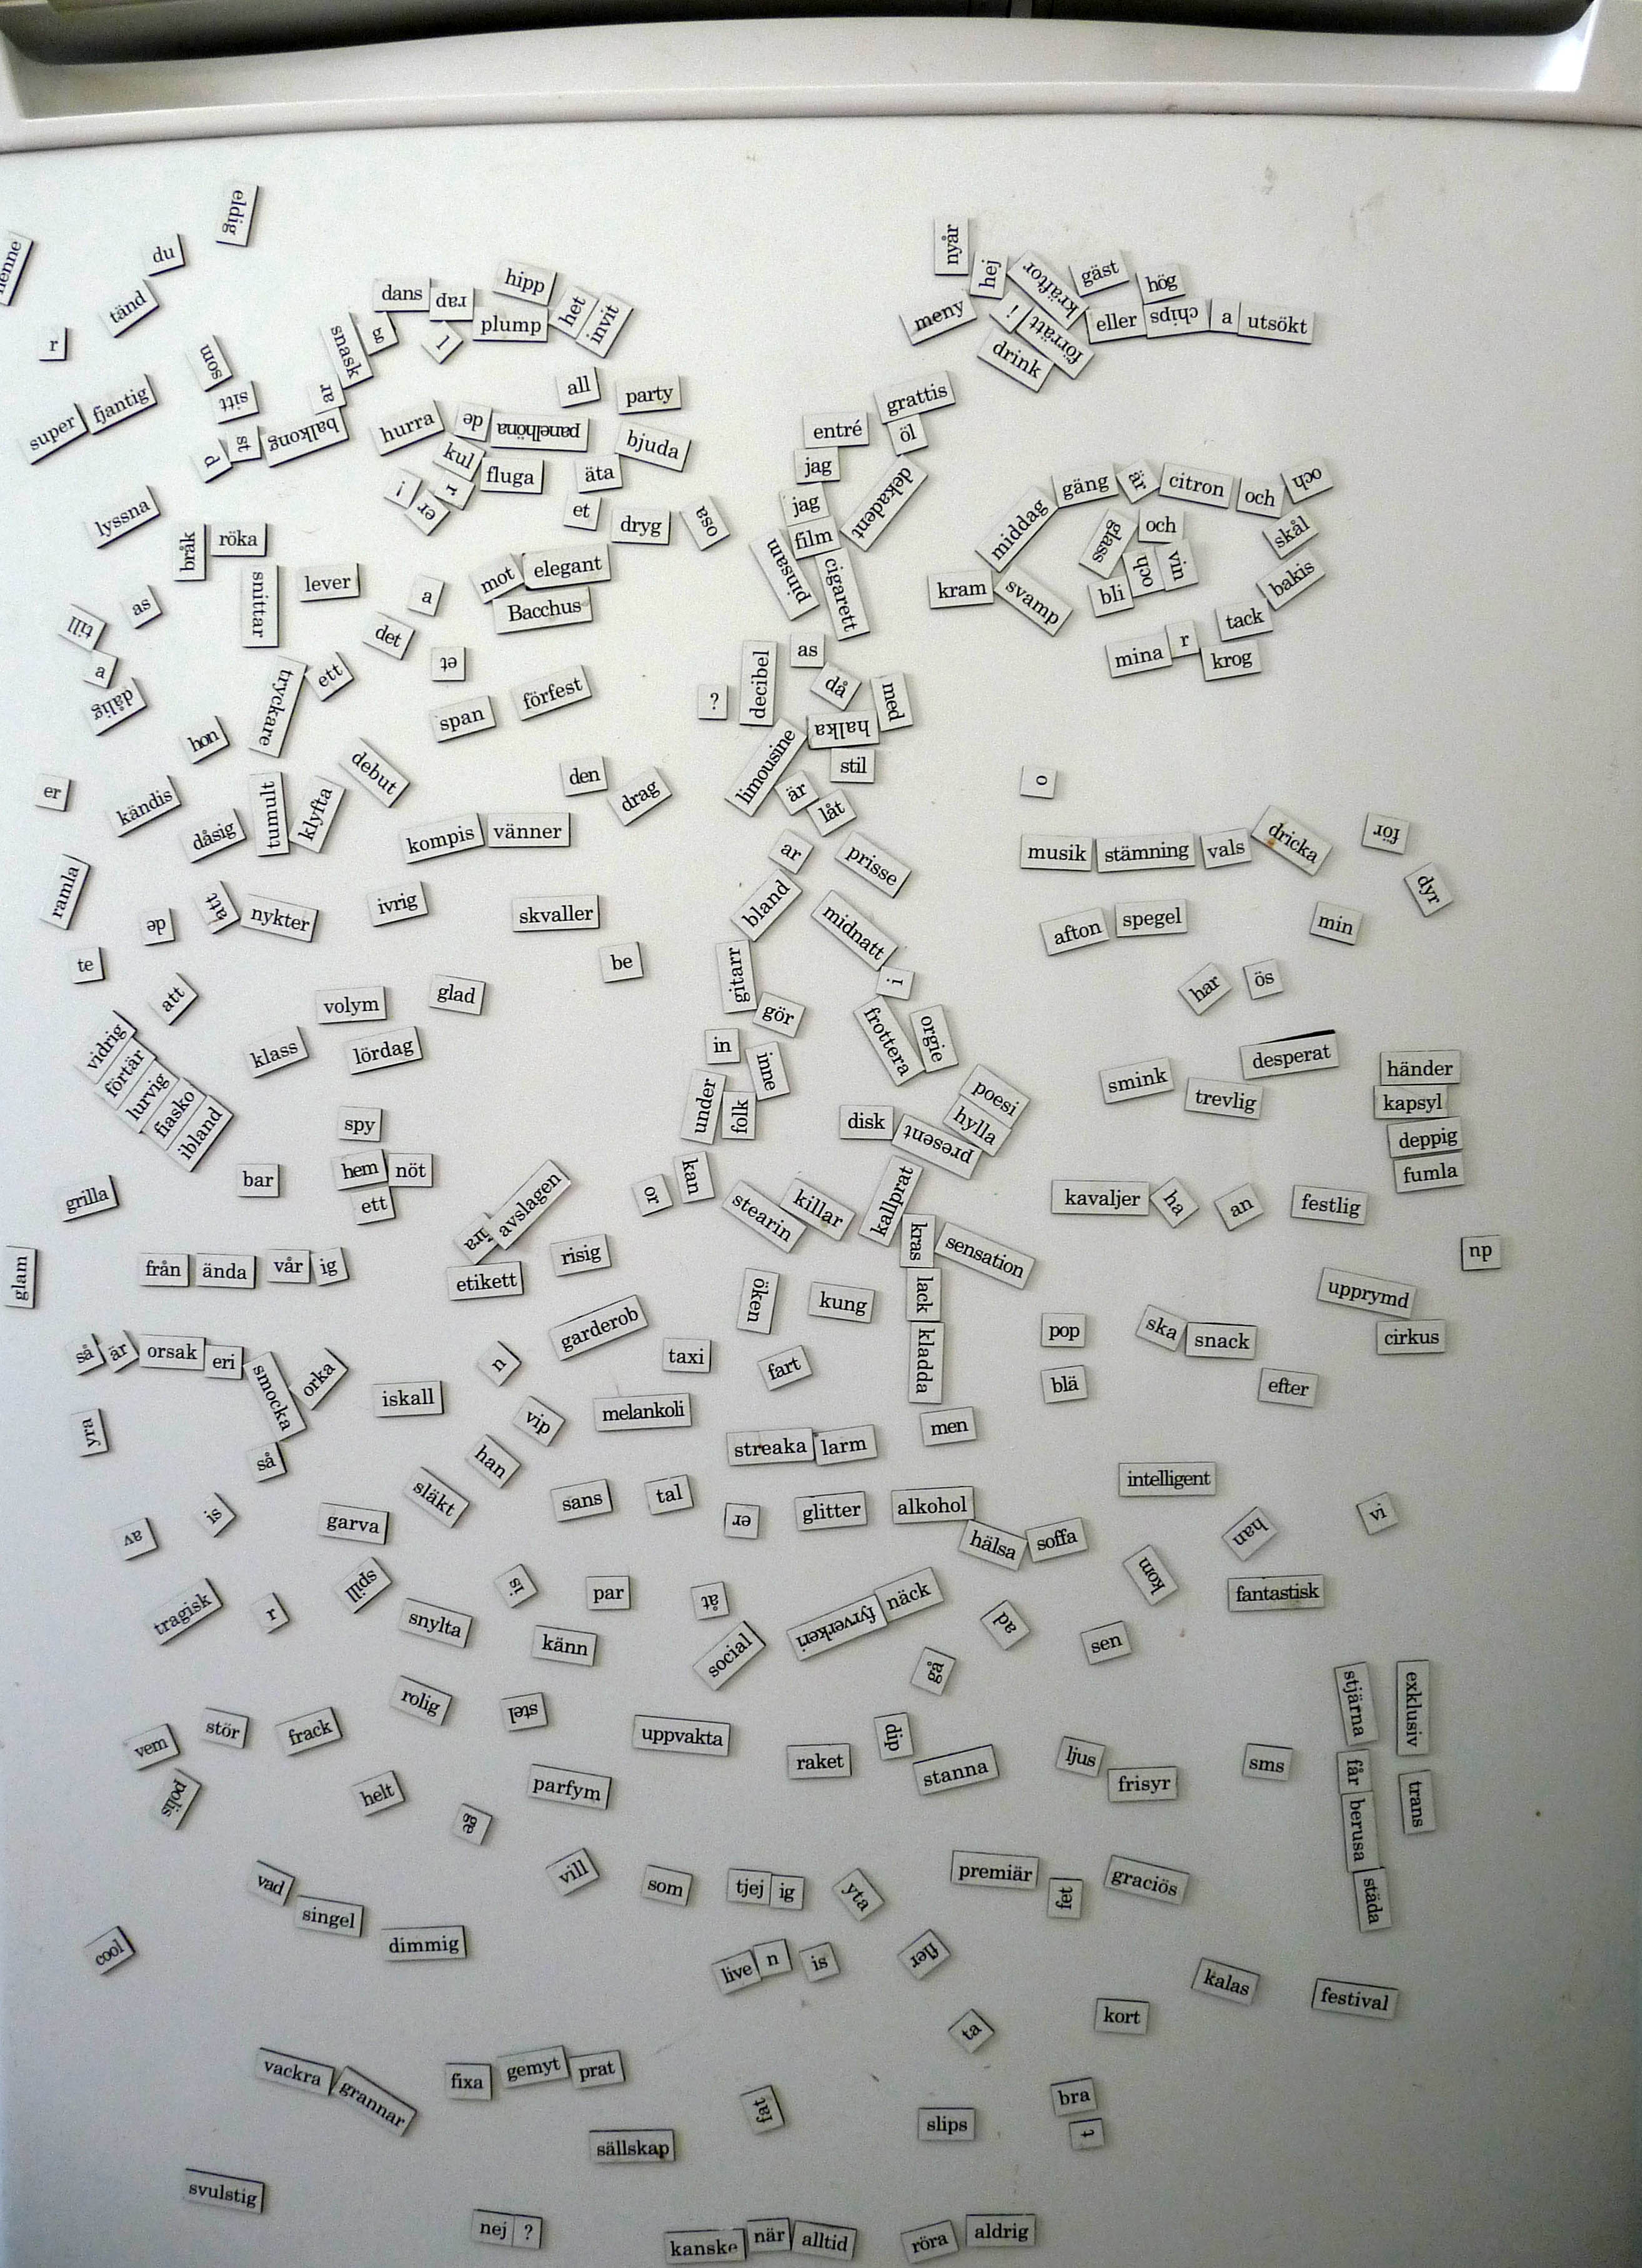 eldig
du
nyår
hej
kräftor
gäst
hög
tänd
dans rap
hipp
het
invit
plump
meny
i
förrätt
eller chips a utsökt
r
snask
g
l
drink
som
all
party
grattis
super fjantig
sitt
ar
hurra
de
panelhöna
bjuda
entré
öl
d
st
balkong
kul
fluga
äta
jag
dekadent
gäng
är
citron
och
och
i
r
er
et
jag
middag
lyssna
dryg
osa
film
glass
och
skål
bråk
röka
pinsam
cigarett
och
vin
snittar
lever
mot elegant
kram
svamp
bli
bakis
as
a
Bacchus
tack
till
det
et
as
mina r
krog
a
ett
decibel
då
med
dålig
tryckare
span
förfest
?
halka
hon
stil
debut
den
limousine
o
er
kändis
drag
är
låt
dåsig
tumult
klyfta
kompis vänner
musik stämning vals dricka
för
ar
prisse
ramla
dyr
de
att
nykter
ivrig
skvaller
bland
midnatt
afton spegel
min
te
be
gitarr
i
har
ös
att
volym
glad
gör
frottera
orgie
vidrig
förtär
lurvig
fiasko
ibland
klass
lördag
in
inne
desperat
händer
under
folk
poesi
hylla
smink
trevlig
kapsyl
spy
disk
present
deppig
bar
hem nöt
fumla
grilla
ett
avslagen
or
kan
stearin
killar
kallprat
kavaljer
ha
an
festlig
kras
sensation
np
glam
från ända vår ig
etikett
risig
öken
kung
lack
upprymd
garderob
kladda
pop
ska
snack
cirkus
så är orsak eri
smocka
orka
n
taxi
fart
iskall
blä
efter
yra
vip
melankoli
men
så
han
streaka larm
släkt
sans
tal
intelligent
is
garva
er
glitter
alkohol
vi
av
hälsa
soffa
han
spill
is
par
åt
näck
kom
fantastisk
tragisk
r
snylta
fyrverkeri
ad
känn
social
sen
gå
rolig
stel
stjärna
exklusiv
stör
frack
uppvakta
dip
vem
raket
stanna
ljus
frisyr
sms
får
polis
helt
parfym
trans
ge
berusa
vad
vill
som
tjej ig
yta
premiär
fet
graciös
städa
singel
cool
dimmig
live n
is
fler
kalas
festival
kort
ta
vackra
grannar
fixa gemyt prat
fat
bra
slips
t
sällskap
svulstig
nej ?
kanske när alltid
röra aldrig